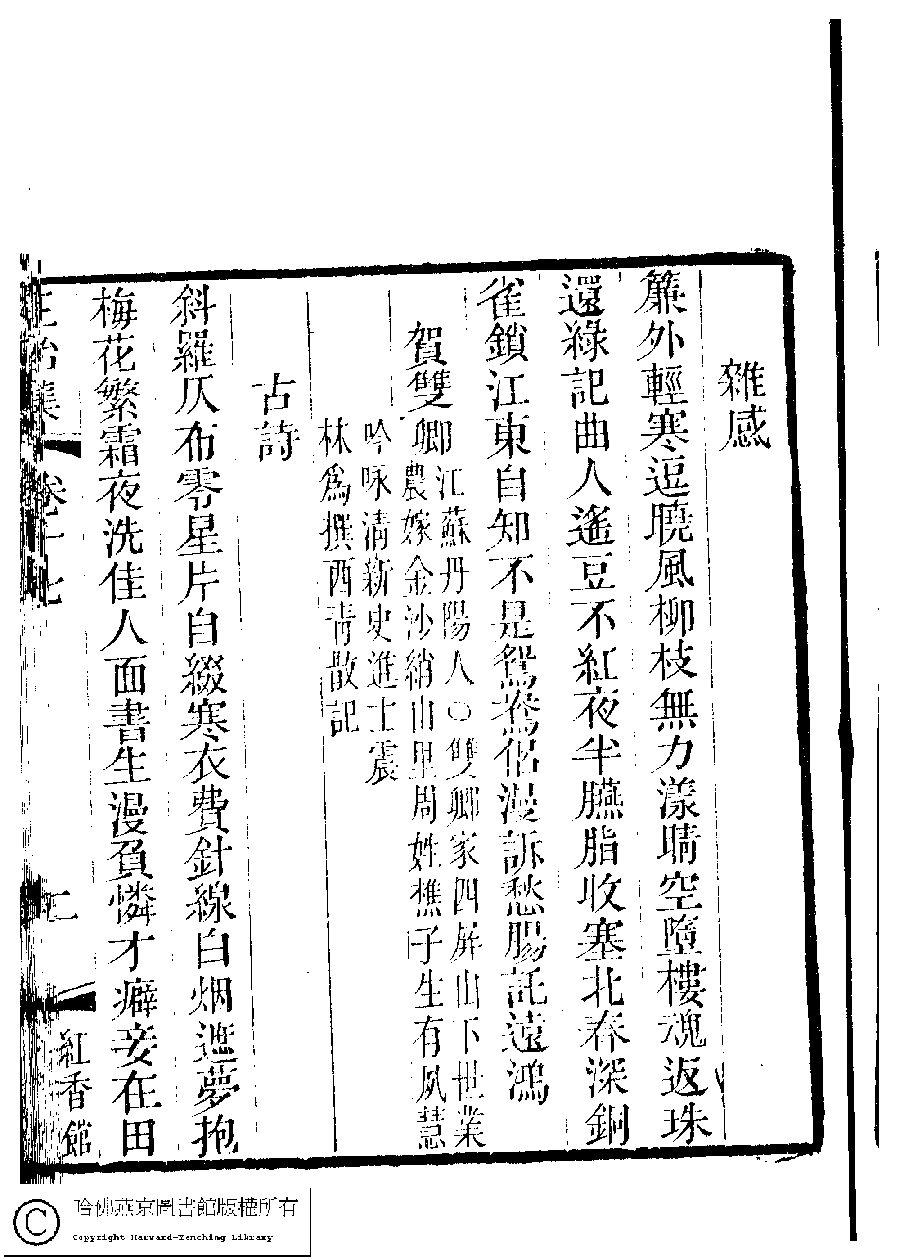 雜感
簾外輕寒逗曉風柳枝無力漾晴空墮樓魂返珠
還綠記曲人遙豆不紅夜半臙脂收塞北春深銅
雀鎖江東自知不是鴛鴦侶漫訴愁腸託遠鴻
賀雙卿江蘇丹陽人○雙卿家四屏山下世業
農嫁金沙綃山里周姓樵子生有夙慧
吟咏清新史進士震
林爲撰西青散記
古詩
斜羅仄布零星片自綴寒衣費針線白烟遮夢抱
梅花繁霜夜洗佳人面書生漫負憐才癖妾在田
卷十七
紅香館
哈佛燕京圖書館版權所有
Copyright Harvard-Yenching Library